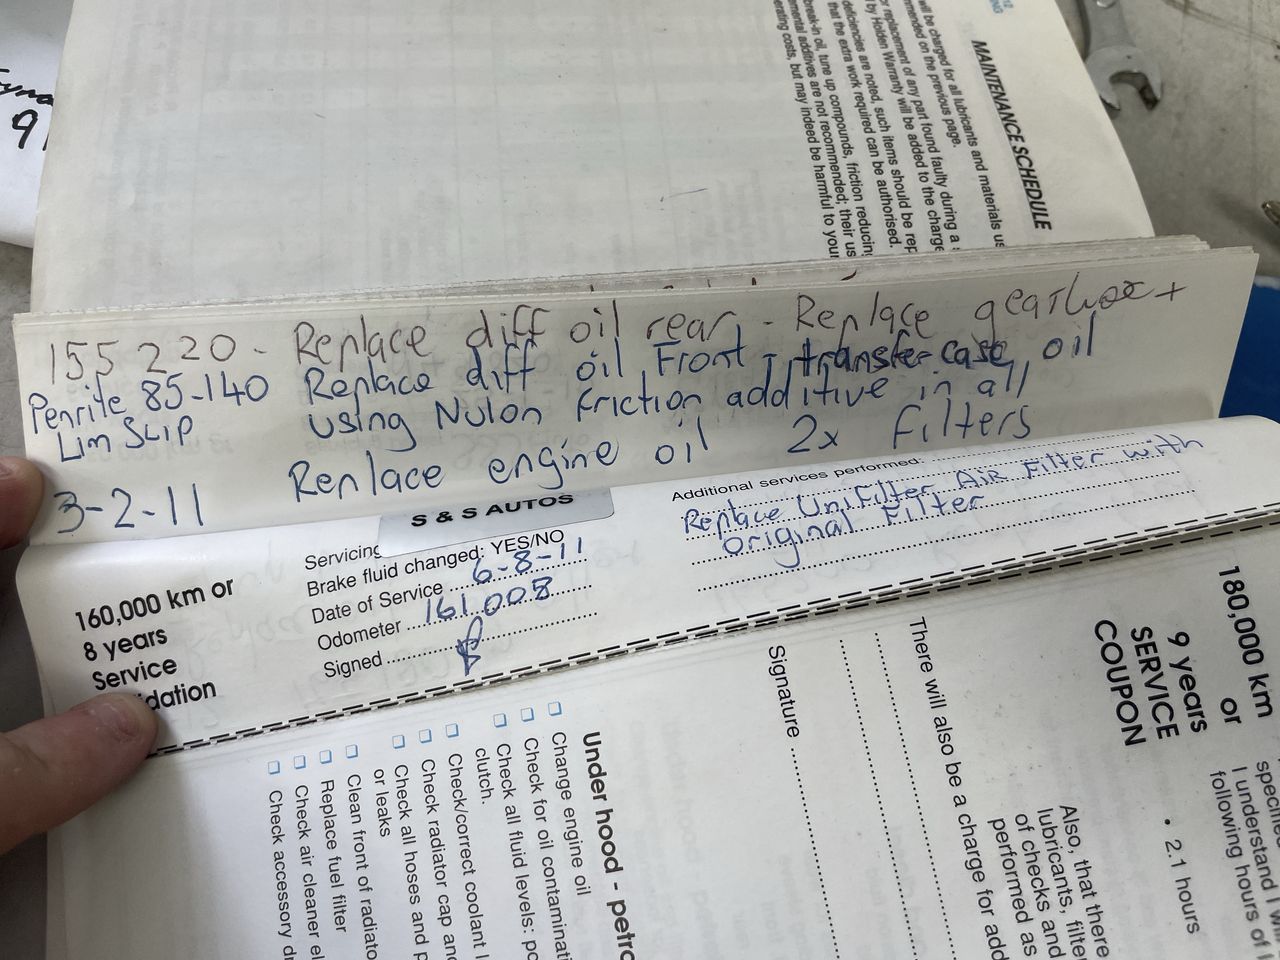 MAINTENANCE SCHEDULE
will be charged for all lubricants and materials us
mmended on the previous page.
r replacement of any part found faulty during a
by Holden Warranty will be added to the charge
deficiencies are noted, such items should be rep
that the extra work required can be authorised.
break-in oil, tune up compounds, friction reducing
emental additives are not recommended; their us
erating costs, but may indeed be harmful to your
155 220 - Replace diff oil rear, - Replace gearbox +
Penrite 85-140 Replace diff oil Front, - transfer case oil
Lim SLIP using Nulon friction additive in all
3-2-11 Replace engine oil 2x Filters
S & S AUTOS
160,000 km or
8 years
Service
dation
Servicing
Brake fluid changed: YES/NO
Date of Service 6-8-11
Odometer 161,008
Signed
Additional services performed:
Replace Unifilter Air Filter with
original Filter
180,000 km
or
9 years
SERVICE
COUPON
I understand I will
following hours of l
• 2.1 hours
There will also be a charge for add
Also, that there
lubricants, filte
of checks and
performed as
Signature
Under hood - petro
Change engine oil
Check for oil contaminati
Check all fluid levels: po
clutch.
Check/correct coolant l
Check radiator cap and
Check all hoses and p
or leaks
Clean front of radiato
Replace fuel filter
Check air cleaner el
Check accessory dr